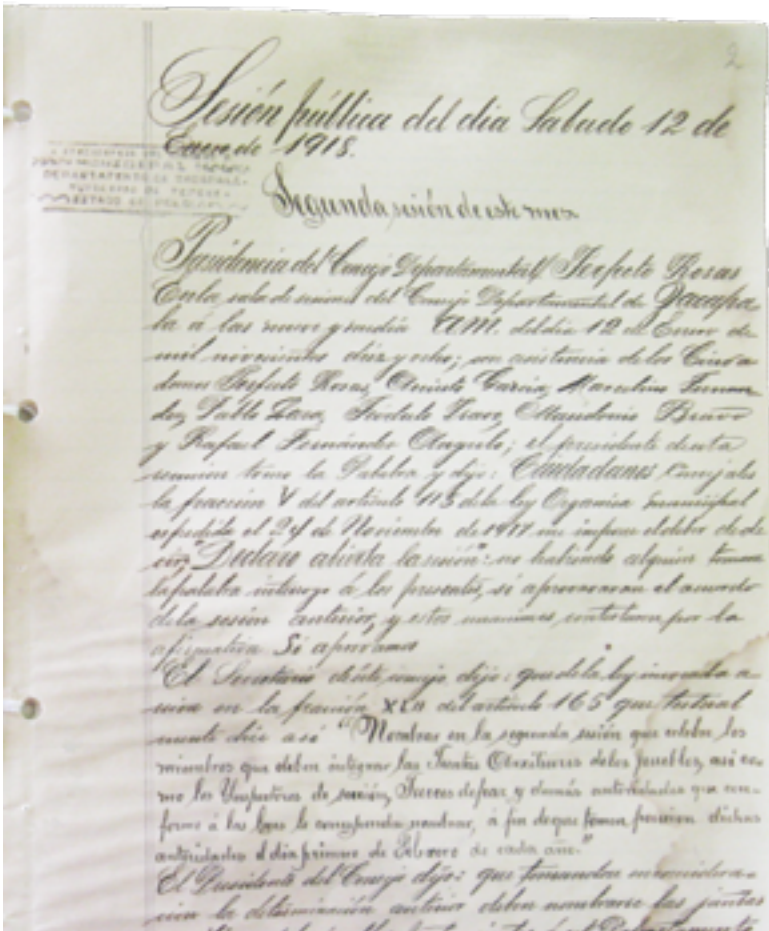 2
Sesión pública del dia Sabado 12 de
Enero de 1918.
DEPARTAMENTO
Segunda sesión de este mes
Presidencia del Consejo Departamental Perfecto Rosas
En la sala de sesiones del Consejo Departamental de
la á las nueve y media A.M. del dia 12 de Enero de
mil novecientos diez y ocho; con asistencia de los Ciuda
danos Perfecto Rosas, García, Marcelino Fernan
dez, Pablo Bravo
y Rafael Fernández; el presidente de esta
reunion tomo la Palabra y dijo: Ciudadanos Consejales
la fracción V del artículo 113 de la ley Organica municipal
espedida el 24 de Noviembre de 1917 me impone el deber de de
cir, "Declaro abierta la sesión": no habiendo alguien
la palabra interrogo á los presentes, si aprovaran el acuerdo
de la sesión anterior, y estos unanimes contestaron por la
afirmativa Si aprovamos
El Secretario de este consejo dijo: que de la ley invocada
en la fracción del artículo 165 que textual
mente dice asi "Nombrar en la segunda sesión que celebre los
miembros que deben integrar las Juntas Auxiliares de los pueblos, asi co-
mo los Inspectores de sección, Jueces de paz y demás autoridades que con-
forme á las leyes le corresponda nombrar, á fin de que tomen posesion dichas
autoridades el dia primero de Febrero de cada año."
El Presidente del Consejo dijo: que tomando en considera-
cion la determinación anterior deben nombrarse las juntas